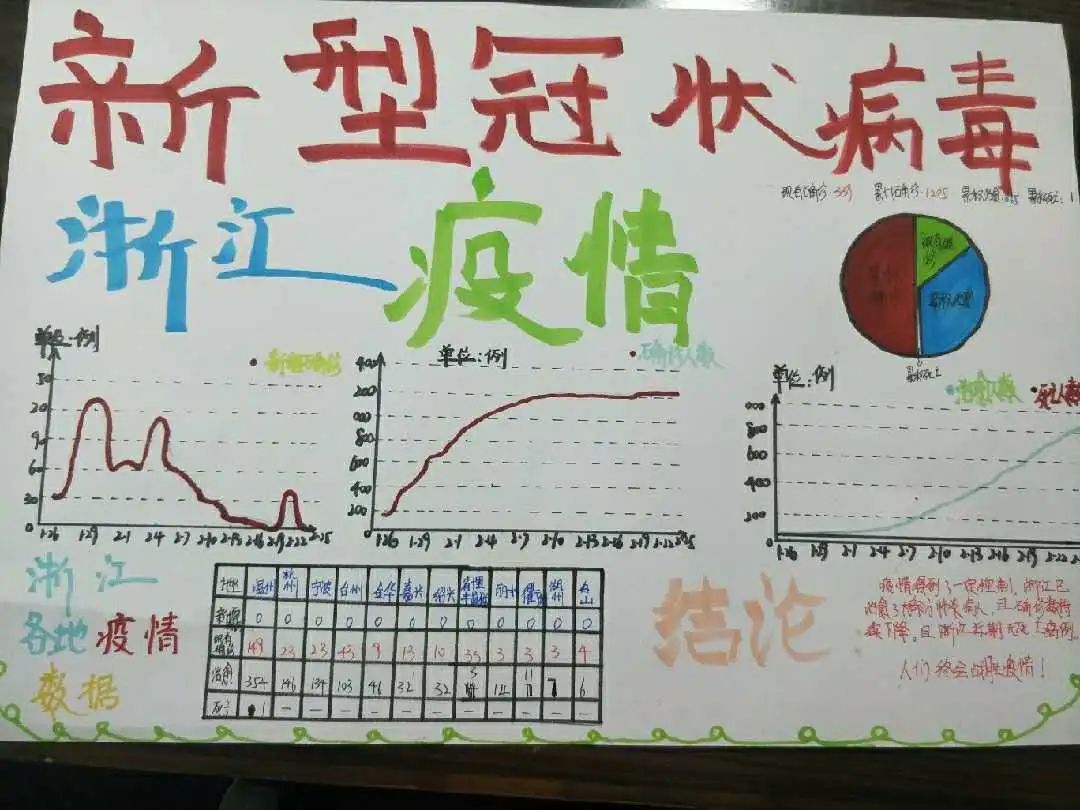 新型冠状病毒
浙江疫情
现有确诊:339 累计确诊:1205
单位:例
新增确诊
30
20
90
60
30
0
1·26 1·29 2·1 2·4 2·7 2·10 2·13 2·16 2·19 2·22 2·25
单位:例
确诊人数
400
200
000
800
600
400
200
1·26 1·29 2·1 2·4 2·7 2·10 2·13 2·16 2·19 2·22 2·25
累计死亡
单位:例
治愈人数 死亡人数
000
800
600
400
200
1·26 1·29 2·1 2·4 2·7 2·10 2·13 2·16 2·19 2·22
浙江
各地疫情
数据
地区 温州 杭州 宁波 台州 金华 嘉兴 绍兴 丽水 衢州 湖州 舟山
新增 0 0 0 0 0 0 0 0 0 0 0 0
现有确诊 149 23 23 43 9 13 10 33 3 3 3 4
治愈 354 146 134 103 46 32 32 14 11 7 6
死亡 1 — — — — — — — — — — —
结论
疫情得到了一定控制,浙江已
治愈了大部分的病人,且确诊
下降,且浙江长期无死亡病例。
人们终会战胜疫情!